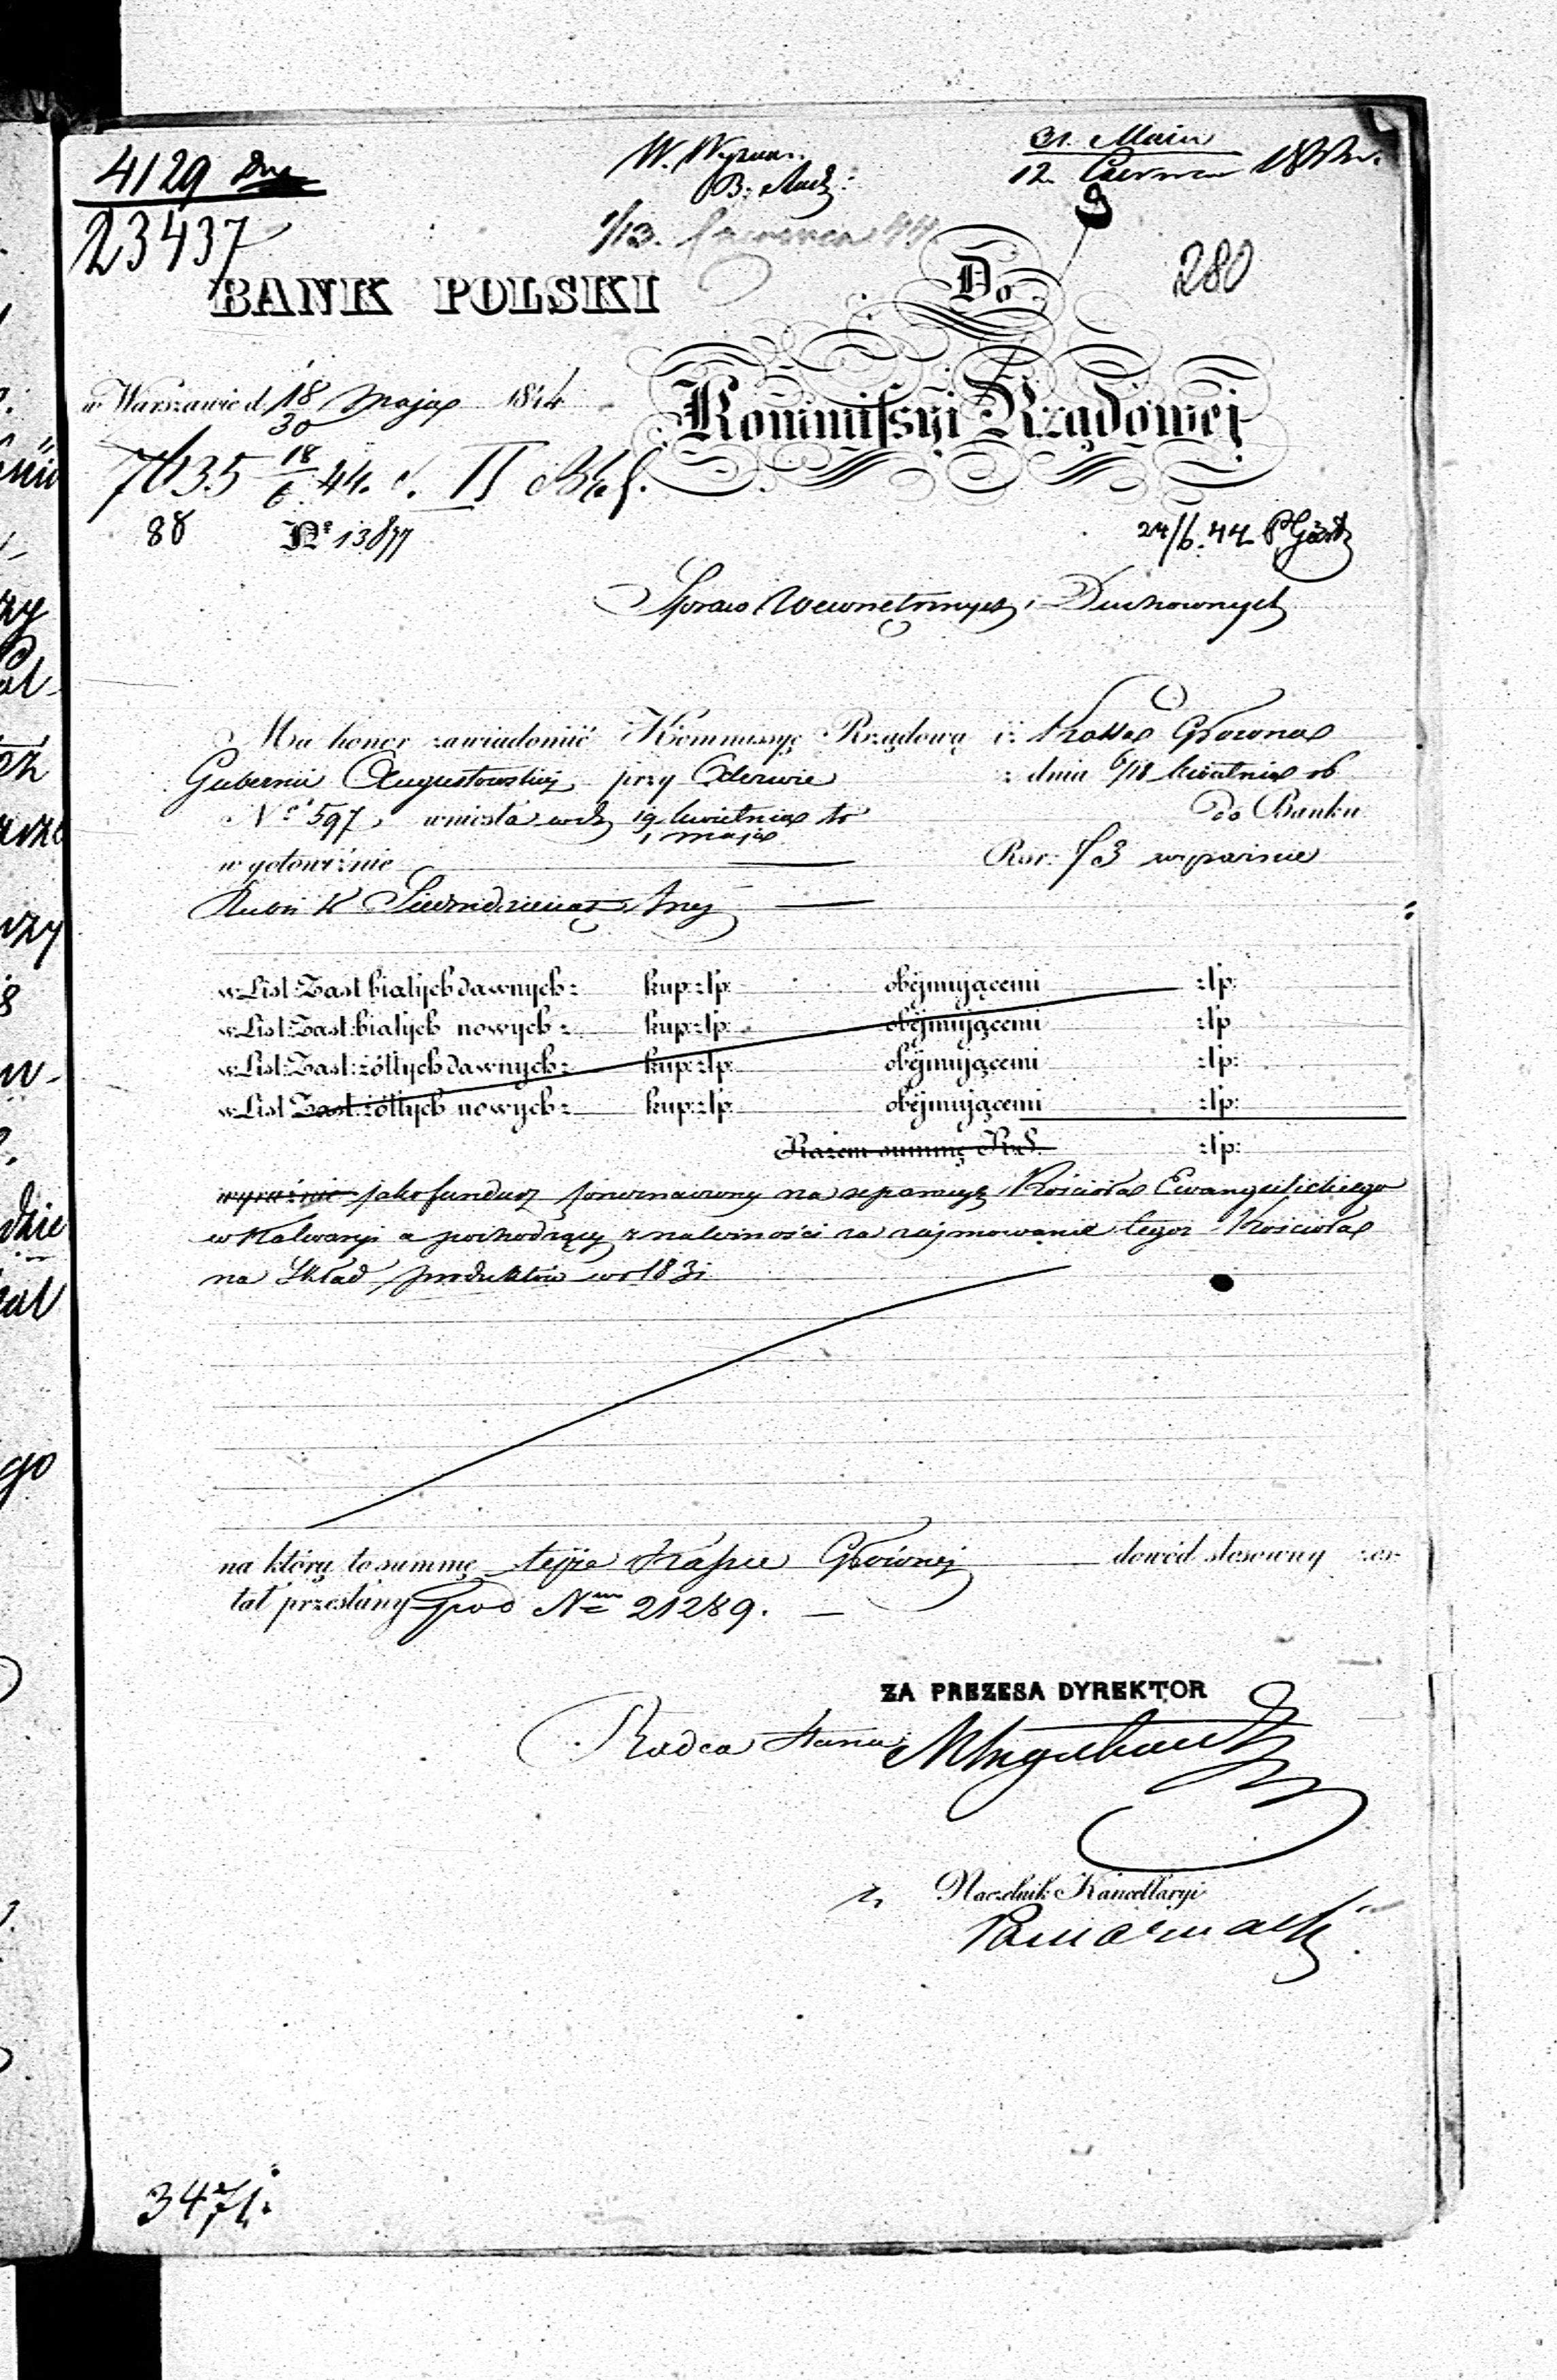 4129
23437
W. Wyznań
31. Maia
12. Czerwca
1/13. Czerwca 44
280
BANK POLSKI
Do
Kommissyi Rządowej
w Warszawie d. 18/30 Maja 1844
7635 18/6 44. II
88 Nr 13877
24/6. 44
Spraw Wewnętrznych i Duchownych
Ma honor zawiadomić Kommissyę Rządową iż Kassa Główna
Gubernii Augustowskiej przy Odezwie z dnia 6/18 kwietnia rb
No 597, wniosła w dn 19 kwietnia do Banku
1 maja
w gotowiźnie Rsr: 73 wyraźnie
Rubli Sr Siedmdziesiąt trzy
w List: Zast: białych dawnych z kup: złp: obejmującemi złp:
w List: Zast: białych nowych z kup: złp: obejmującemi złp
w List: Zast: żółtych dawnych z kup: złp: obejmującemi złp:
w List Zast: żółtych nowych z kup: złp: obejmującemi złp:
Razem summę RsS. złp:
wyraźnie jako fundusz przeznaczony na reparacyę Kościoła Ewangelickiego
w Kalwaryi a pochodzący z należności za zajmowanie tegoż Kościoła
na Skład produktów w r 1831
na którą to summę tejże Kassie Głównej dowód stosowny zos-
tał przesłany pod Nem 21289.
ZA PREZESA DYREKTOR
Radca Stanu
Naczelnik Kancellaryi